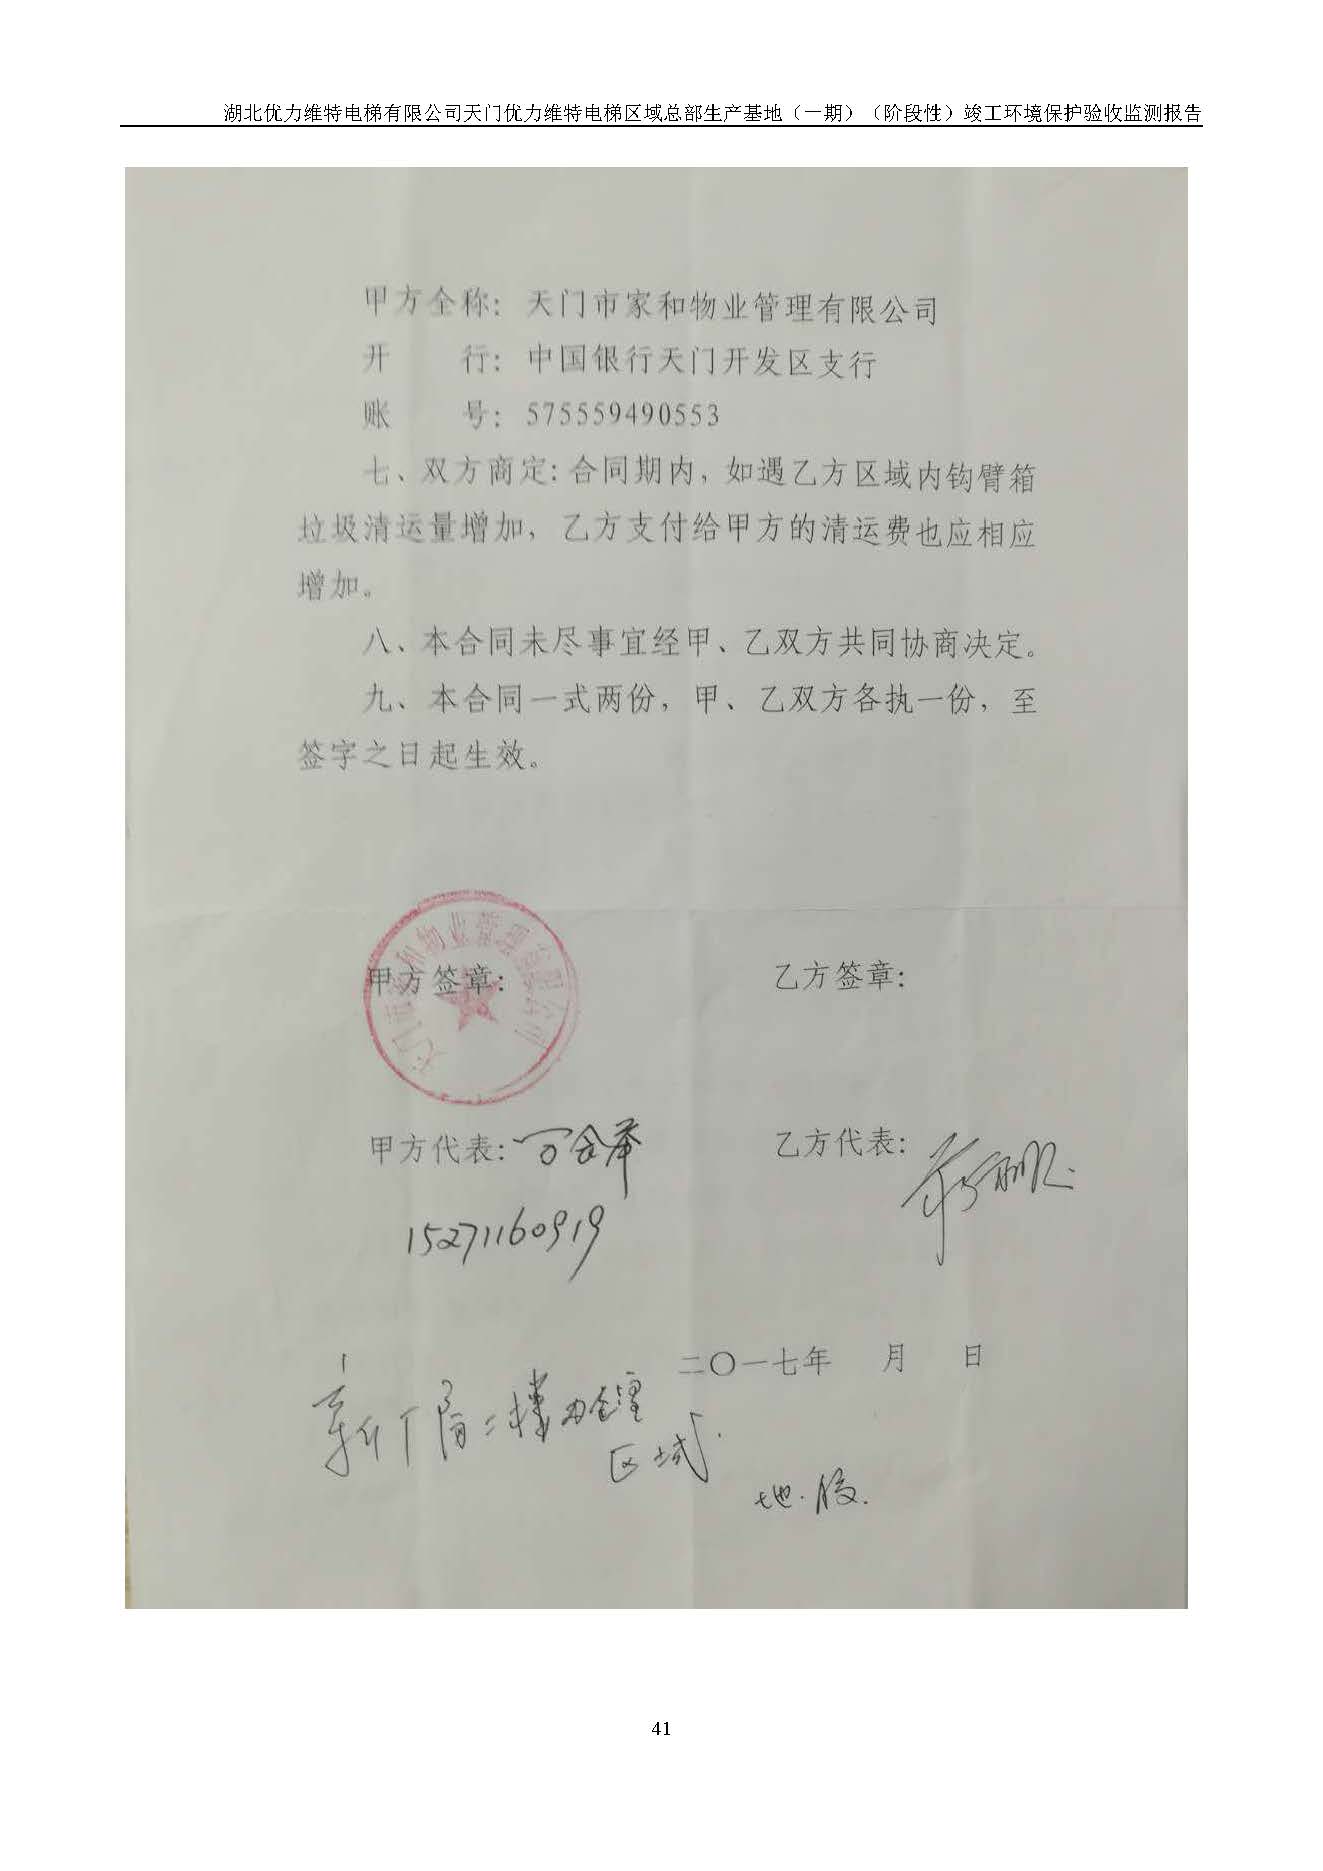 湖北优力维特电梯有限公司天门优力维特电梯区域总部生产基地（一期）（阶段性）竣工环境保护验收监测报告
甲方全称：天门市家和物业管理有限公司
开　　行：中国银行天门开发区支行
账　　号：575559490553
七、双方商定：合同期内，如遇乙方区域内钩臂箱
垃圾清运量增加，乙方支付给甲方的清运费也应相应
增加。
八、本合同未尽事宜经甲、乙双方共同协商决定。
九、本合同一式两份，甲、乙双方各执一份，至
签字之日起生效。
天门市家和物业管理有限公司
甲方签章：
乙方签章：
甲方代表：
乙方代表：
15271160919
二〇一七年　月　日
区域
41